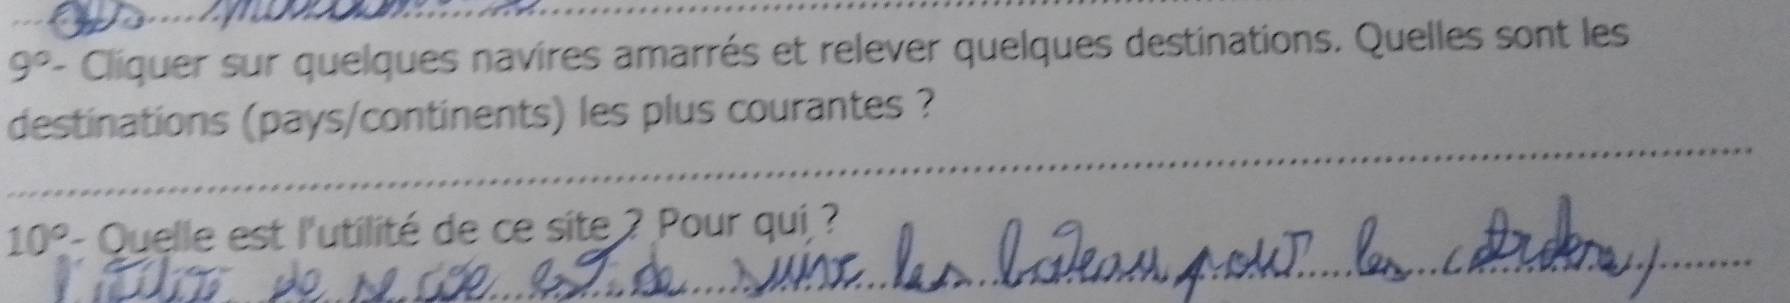 9°- Cliquer sur quelques navires amarrés et relever quelques destinations. Quelles sont les
destinations (pays/continents) les plus courantes ?
10°- Quelle est l'utilité de ce site ? Pour qui ?
l'utilité de se site est de suivre les bateau pour les